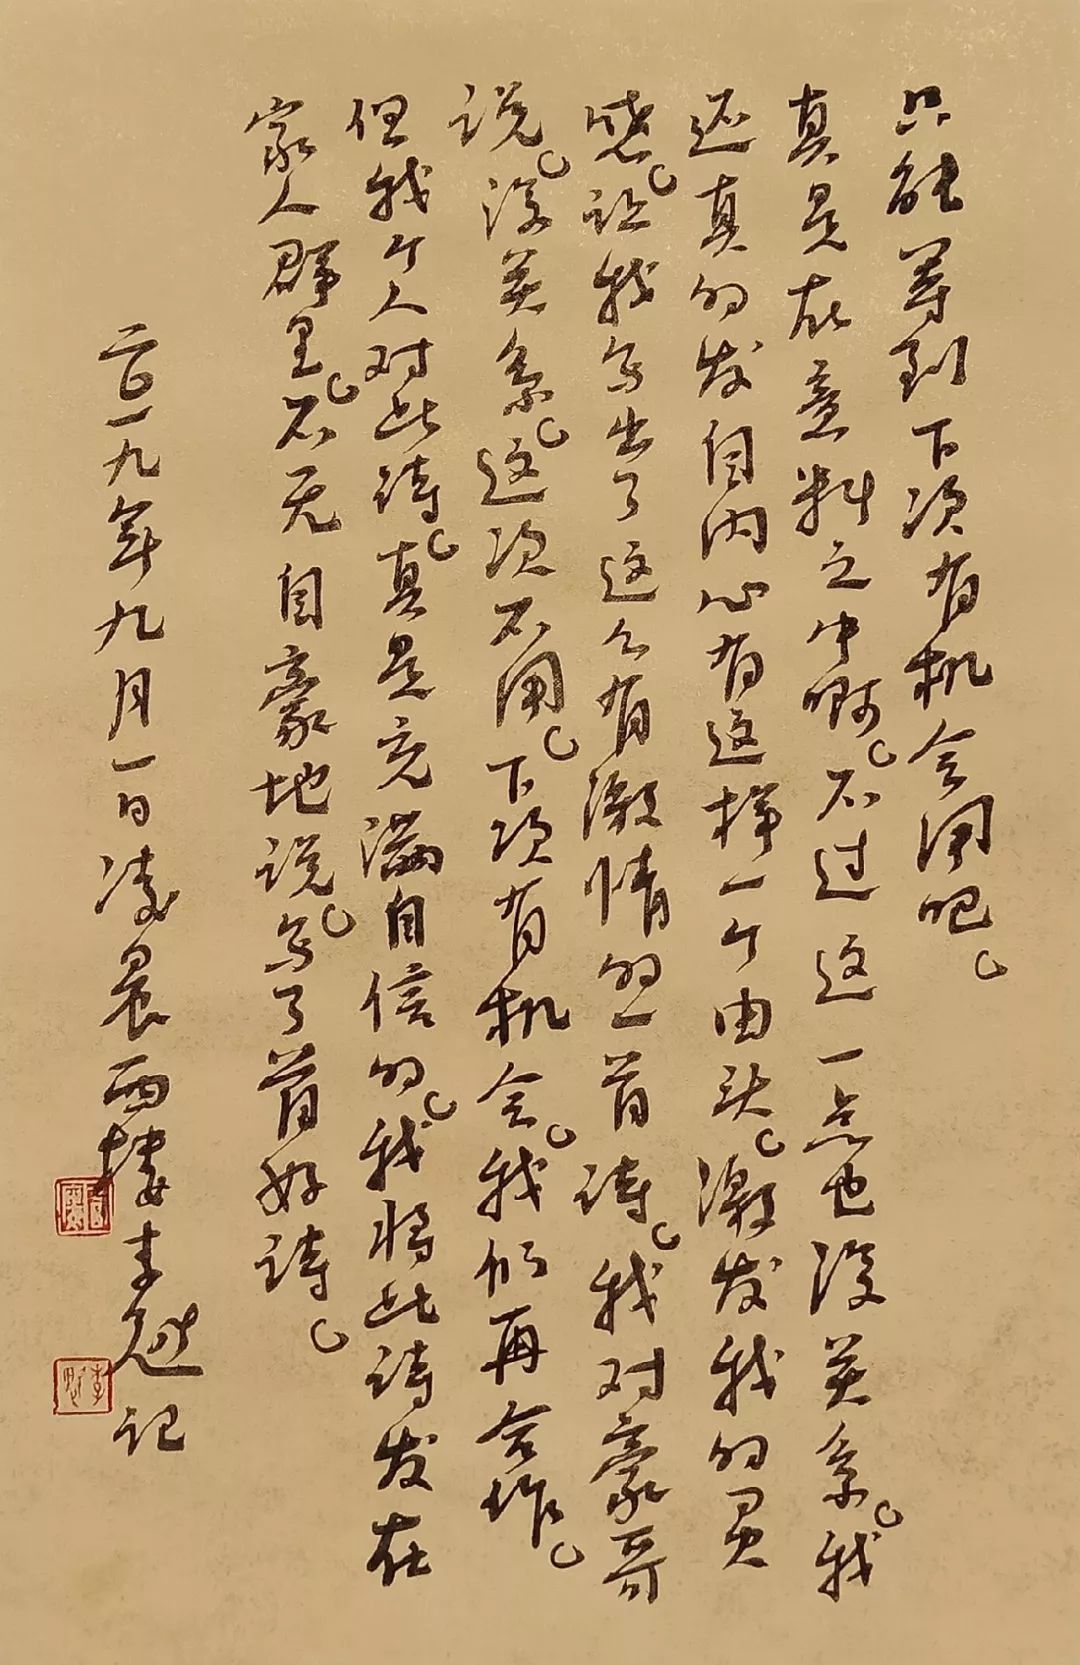 只能等到下次有机会用吧。
真是在意料之中啊。不过这一点也没关系。我
还真的发自内心有这样一个由头。激发我的灵
感。让我写出了这么有激情的一首诗。我对豪哥
说。没关系。这次不用。下次有机会。我们再合作。
但我个人对此诗。真是充满自信的。我将此诗发在
家人群里。不无自豪地说。写了首好诗。
二〇一九年九月一日凌晨楼李记